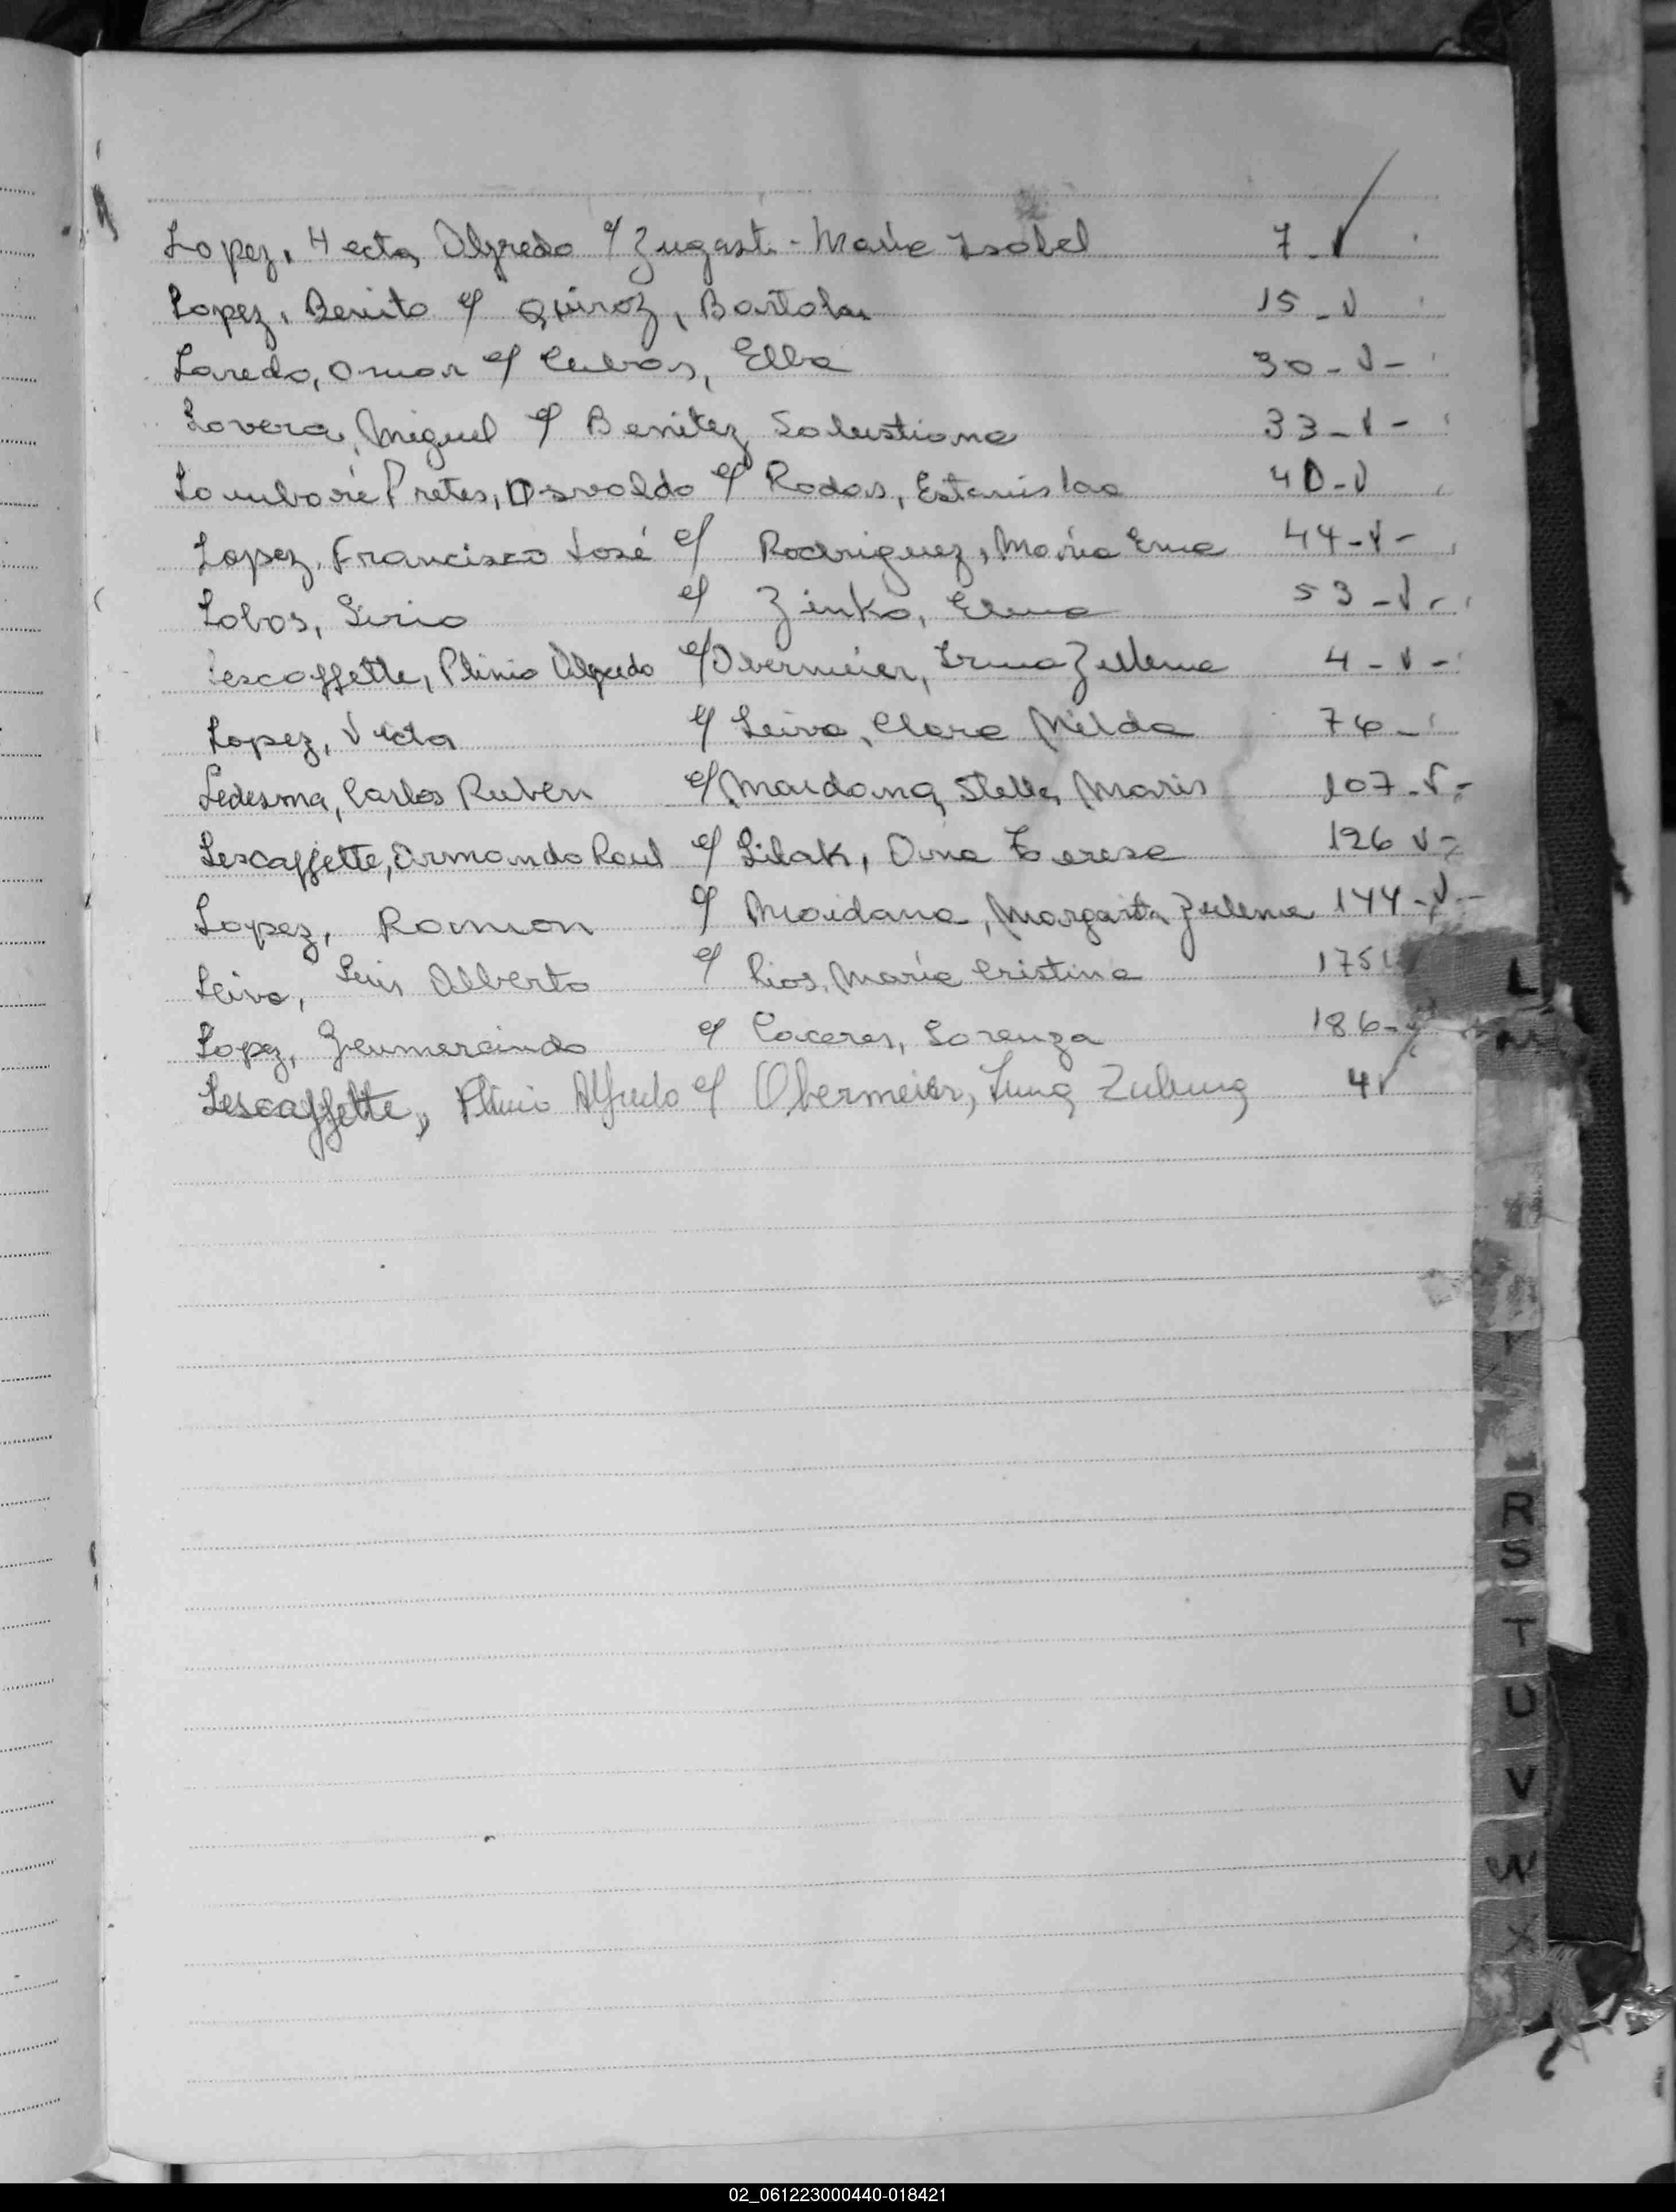 Lopez, Hector Alfredo c/ Zugasti - Maria Isabel 7 - √
Lopez, Benito c/ Quiroz, Bartola 15 - √
Laredo, Omar c/ Cubas, Elba 30 - √ -
Lovera, Miguel c/ Benitez Salustiana 33 - √ -
Pretes, Osvaldo c/ Rodas, Estanislaa 40 - √
Lopez, Francisco José c/ Rodriguez, Maria Ema 44 - √ -
Lobos, Sirio c/ Zinko, Elena 53 - √ -
Lescaffette, Plinio Alfredo c/ Obermeier, Irma Zulema 4 - √ -
Lopez, Victor c/ Leiva, Clara Nilda 76 -
Ledesma, Carlos Ruben c/ Maidana, Stella Maris 107 - √ -
Lescaffette, Armando Raul c/ Lilak, Dina Teresa 126 √ -
Lopez, Ramon c/ Maidana, Margarita Zulema 144 - √ -
Leiva, Luis Alberto c/ Rios, María Cristina 175 √
Lopez, Gumercindo c/ Caceres, Lorenza 186 - √
Lescaffette, Plinio Alfredo c/ Obermeier, Irma Zulema 4 √
L
R
S
T
U
V
W
X
02_061223000440-018421